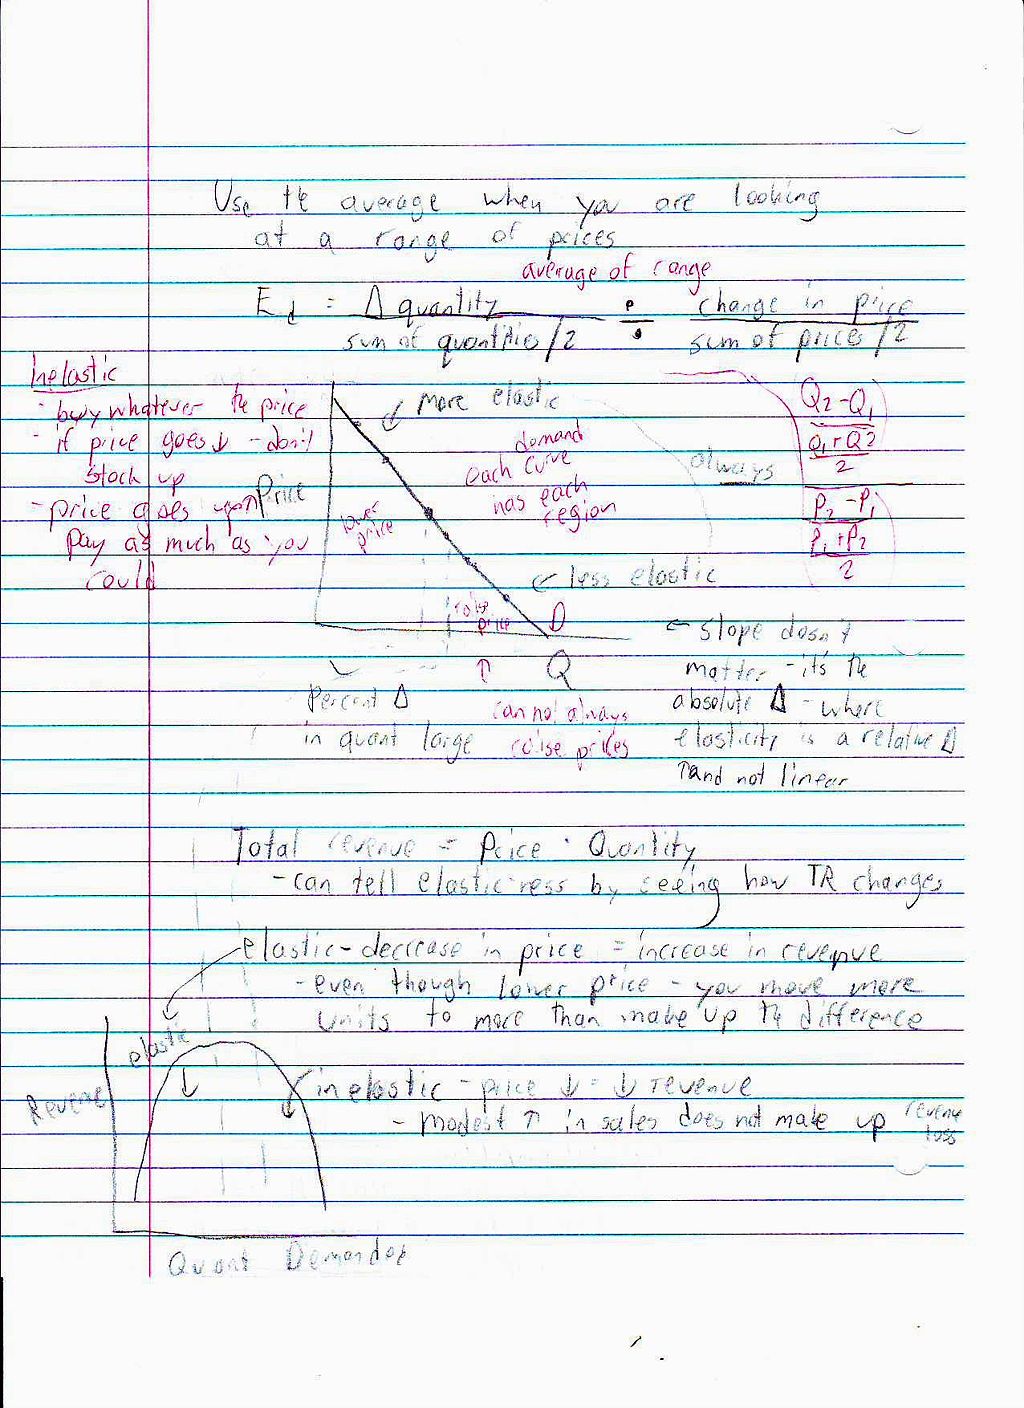 Use the average when you are looking
at a range of prices
average of range
Ed = Δ quantity ÷ change in price
sum of quantities/2 sum of prices/2
Inelastic
- buy whatever the price
- if price goes ↓ - don't
stock up
- price goes up
pay as much as you
could
Price
← more elastic
demand
each curve
has each
region
lower
price
← less elastic
raise
price
D
Q
always
Q2 - Q1
Q1 + Q2
2
P2 - P1
P1 + P2
2
← slope doesn't
matter - it's the
absolute Δ - where
elasticity is a relative Δ
↑ and not linear
Percent Δ
in quant large
↑
can not always
raise prices
Total revenue = Price · Quantity
- can tell elastic-ness by seeing how TR changes
elastic - decrease in price = increase in revenue
- even though lower price - you move more
units to more than make up the difference
elastic
↓
Revenue
inelastic - price ↓ = ↓ revenue
- modest ↑ in sales does not make up revenue
loss
Quant Demanded